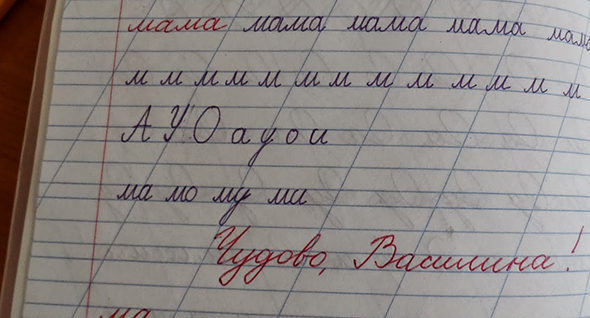 мама мама мама мама мама
м м м м м м м м м м м м м м
А У О а у о и
ма мо му ми
Чудово, Василина!
ма